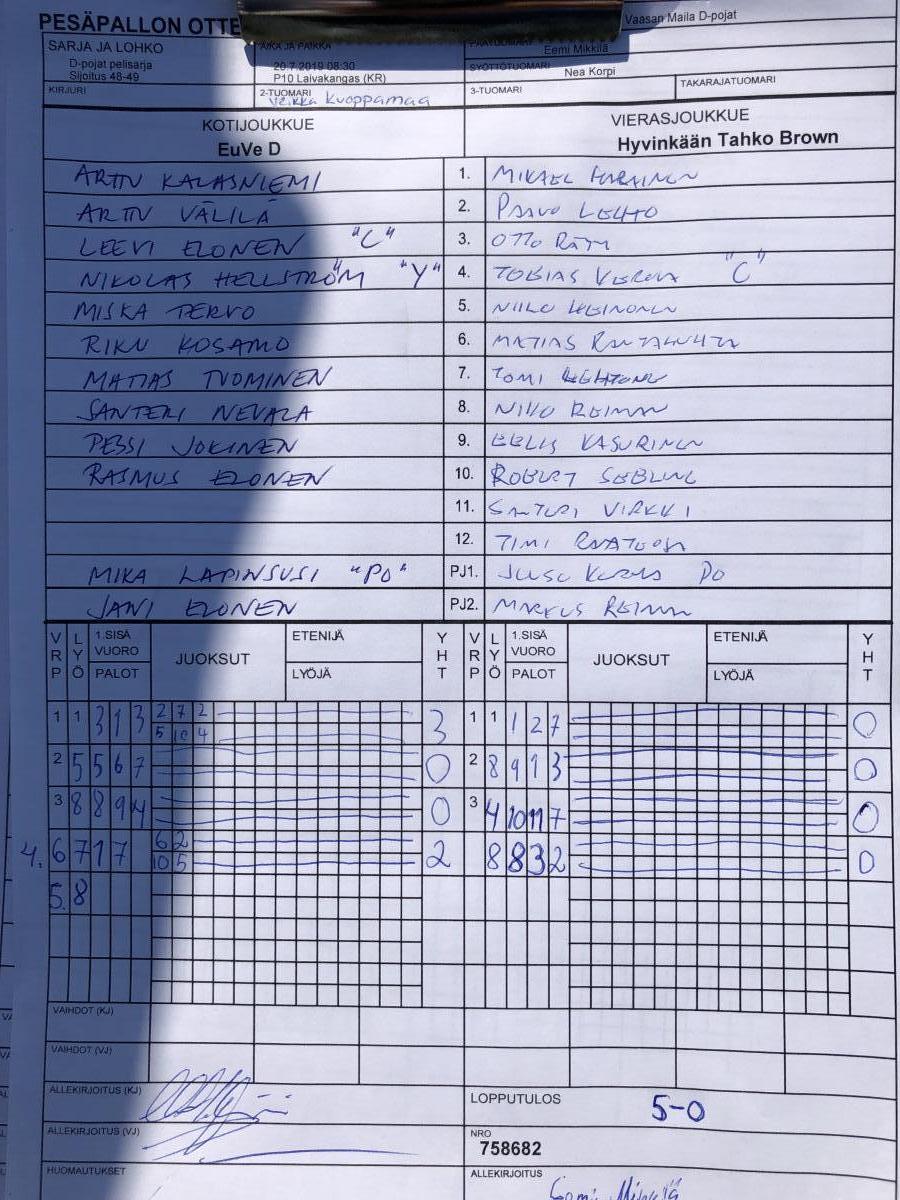 PESÄPALLON OTTE
Vaasan Maila D-pojat
SARJA JA LOHKO
D-pojat pelisarja
Sijoitus 48-49
AIKA JA PAIKKA
20.7.2019 08:30
P10 Laivakangas (KR)
Eemi Mikkilä
SYÖTTÖTUOMARI
Nea Korpi
KIRJURI
2-TUOMARI
Veikka Kuoppamaa
3-TUOMARI
TAKARAJATUOMARI
KOTIJOUKKUE
EuVe D
VIERASJOUKKUE
Hyvinkään Tahko Brown
ARTTU KALASNIEMI 1. MIKAEL
ARTTU VÄLILÄ 2. PAAVO LEHTO
LEEVI ELONEN "C" 3. OTTO
NIKOLAS HELLSTRÖM "Y" 4. TOBIAS "C"
MISKA TERVO 5. NIILO HEINONEN
RIKU KOSAMO 6. MATIAS
MATIAS TUOMINEN 7. TOMI
SANTERI NEVALA 8. NIILO REIMAN
PESSI JOKINEN 9. EELIS KASURINEN
RASMUS ELONEN 10. ROBERT
11. SANTERI VIRKKI
12. TIMI
MIKA LAPINSUSI "PO" PJ1. PO
JANI ELONEN PJ2. MARKUS REIMAN
VRP LYÖ 1.SISÄ VUORO PALOT JUOKSUT ETENIJÄ LYÖJÄ YHT VRP LYÖ 1.SISÄ VUORO PALOT JUOKSUT ETENIJÄ LYÖJÄ YHT
1 1 3 1 3 2 7 2 3 1 1 1 2 7 0
5 10 4
2 5 5 6 7 0 2 8 9 1 3 0
3 8 8 9 4 0 3 4 10 11 7 0
4. 6 7 1 7 6 2 2 8 8 3 2 0
10 5
5. 8
VAIHDOT (KJ)
VAIHDOT (VJ)
ALLEKIRJOITUS (KJ)
LOPPUTULOS 5-0
ALLEKIRJOITUS (VJ)
NRO
758682
HUOMAUTUKSET
ALLEKIRJOITUS